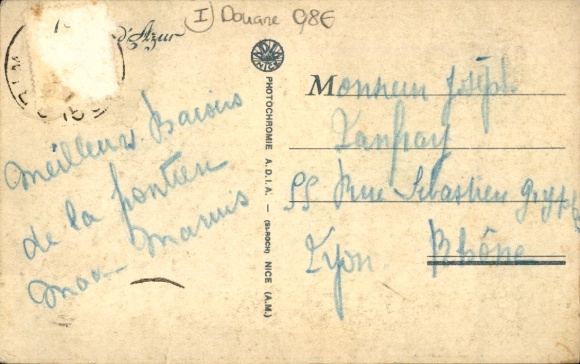 I Douane 98E
d'Azur
Meilleurs Baisers
de la frontière
PHOTOCHROMIE A.D.I.A. — (St-ROCH) NICE (A.M.)
Monsieur Joseph
55 Rue Sébastien Gryphe
Lyon. Rhône